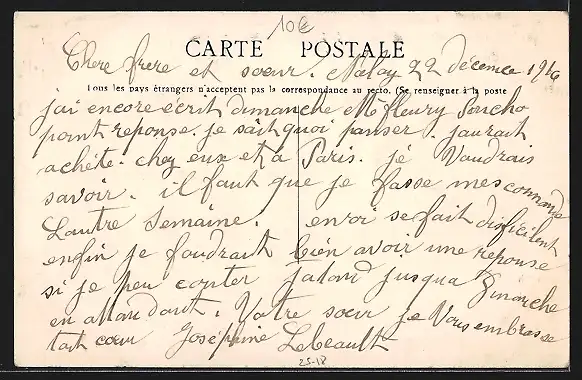 10€
CARTE POSTALE
Chere frere et soeur. 22 décemce 191
Tous les pays étrangers n'acceptent pas la correspondance au recto. (Se renseigner à la poste
jai encore écrit dimanche Mr fleury
point reponse. je sait quoi panser. jaurait
achété. chez eux et a Paris. jé Vaudrais
savoir. il faut que je fasse mes commande
Lautre Semaine. envoi se fait dificilent
enfin je faudrait bien avoir une reponse
si je peu conter jatand jusqua Dimanche
en attandant. Votre soeur je Vous embrasse
tout coeur Joséphine Lebeault
25-18